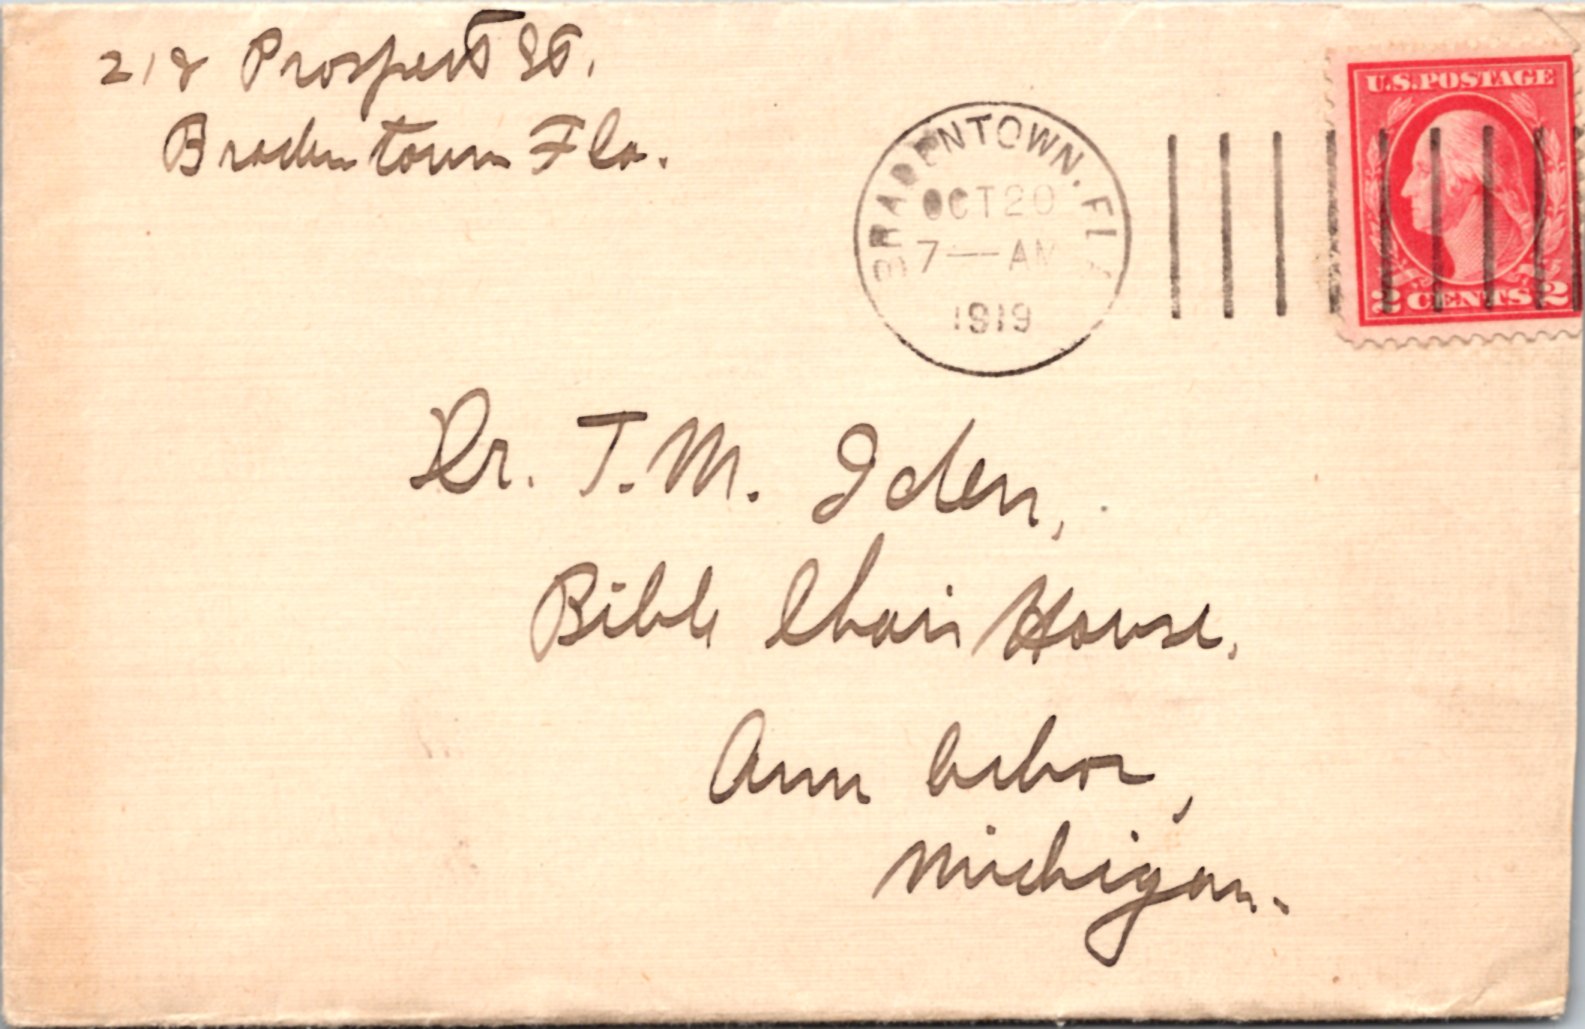 218 Prospect St.
Bradentown Fla.
BRADENTOWN. FLA
OCT 20
7—AM
1919
U.S. POSTAGE
2 CENTS 2
Dr. T. M. Iden,
Bible Chair House,
Ann Arbor,
Michigan.